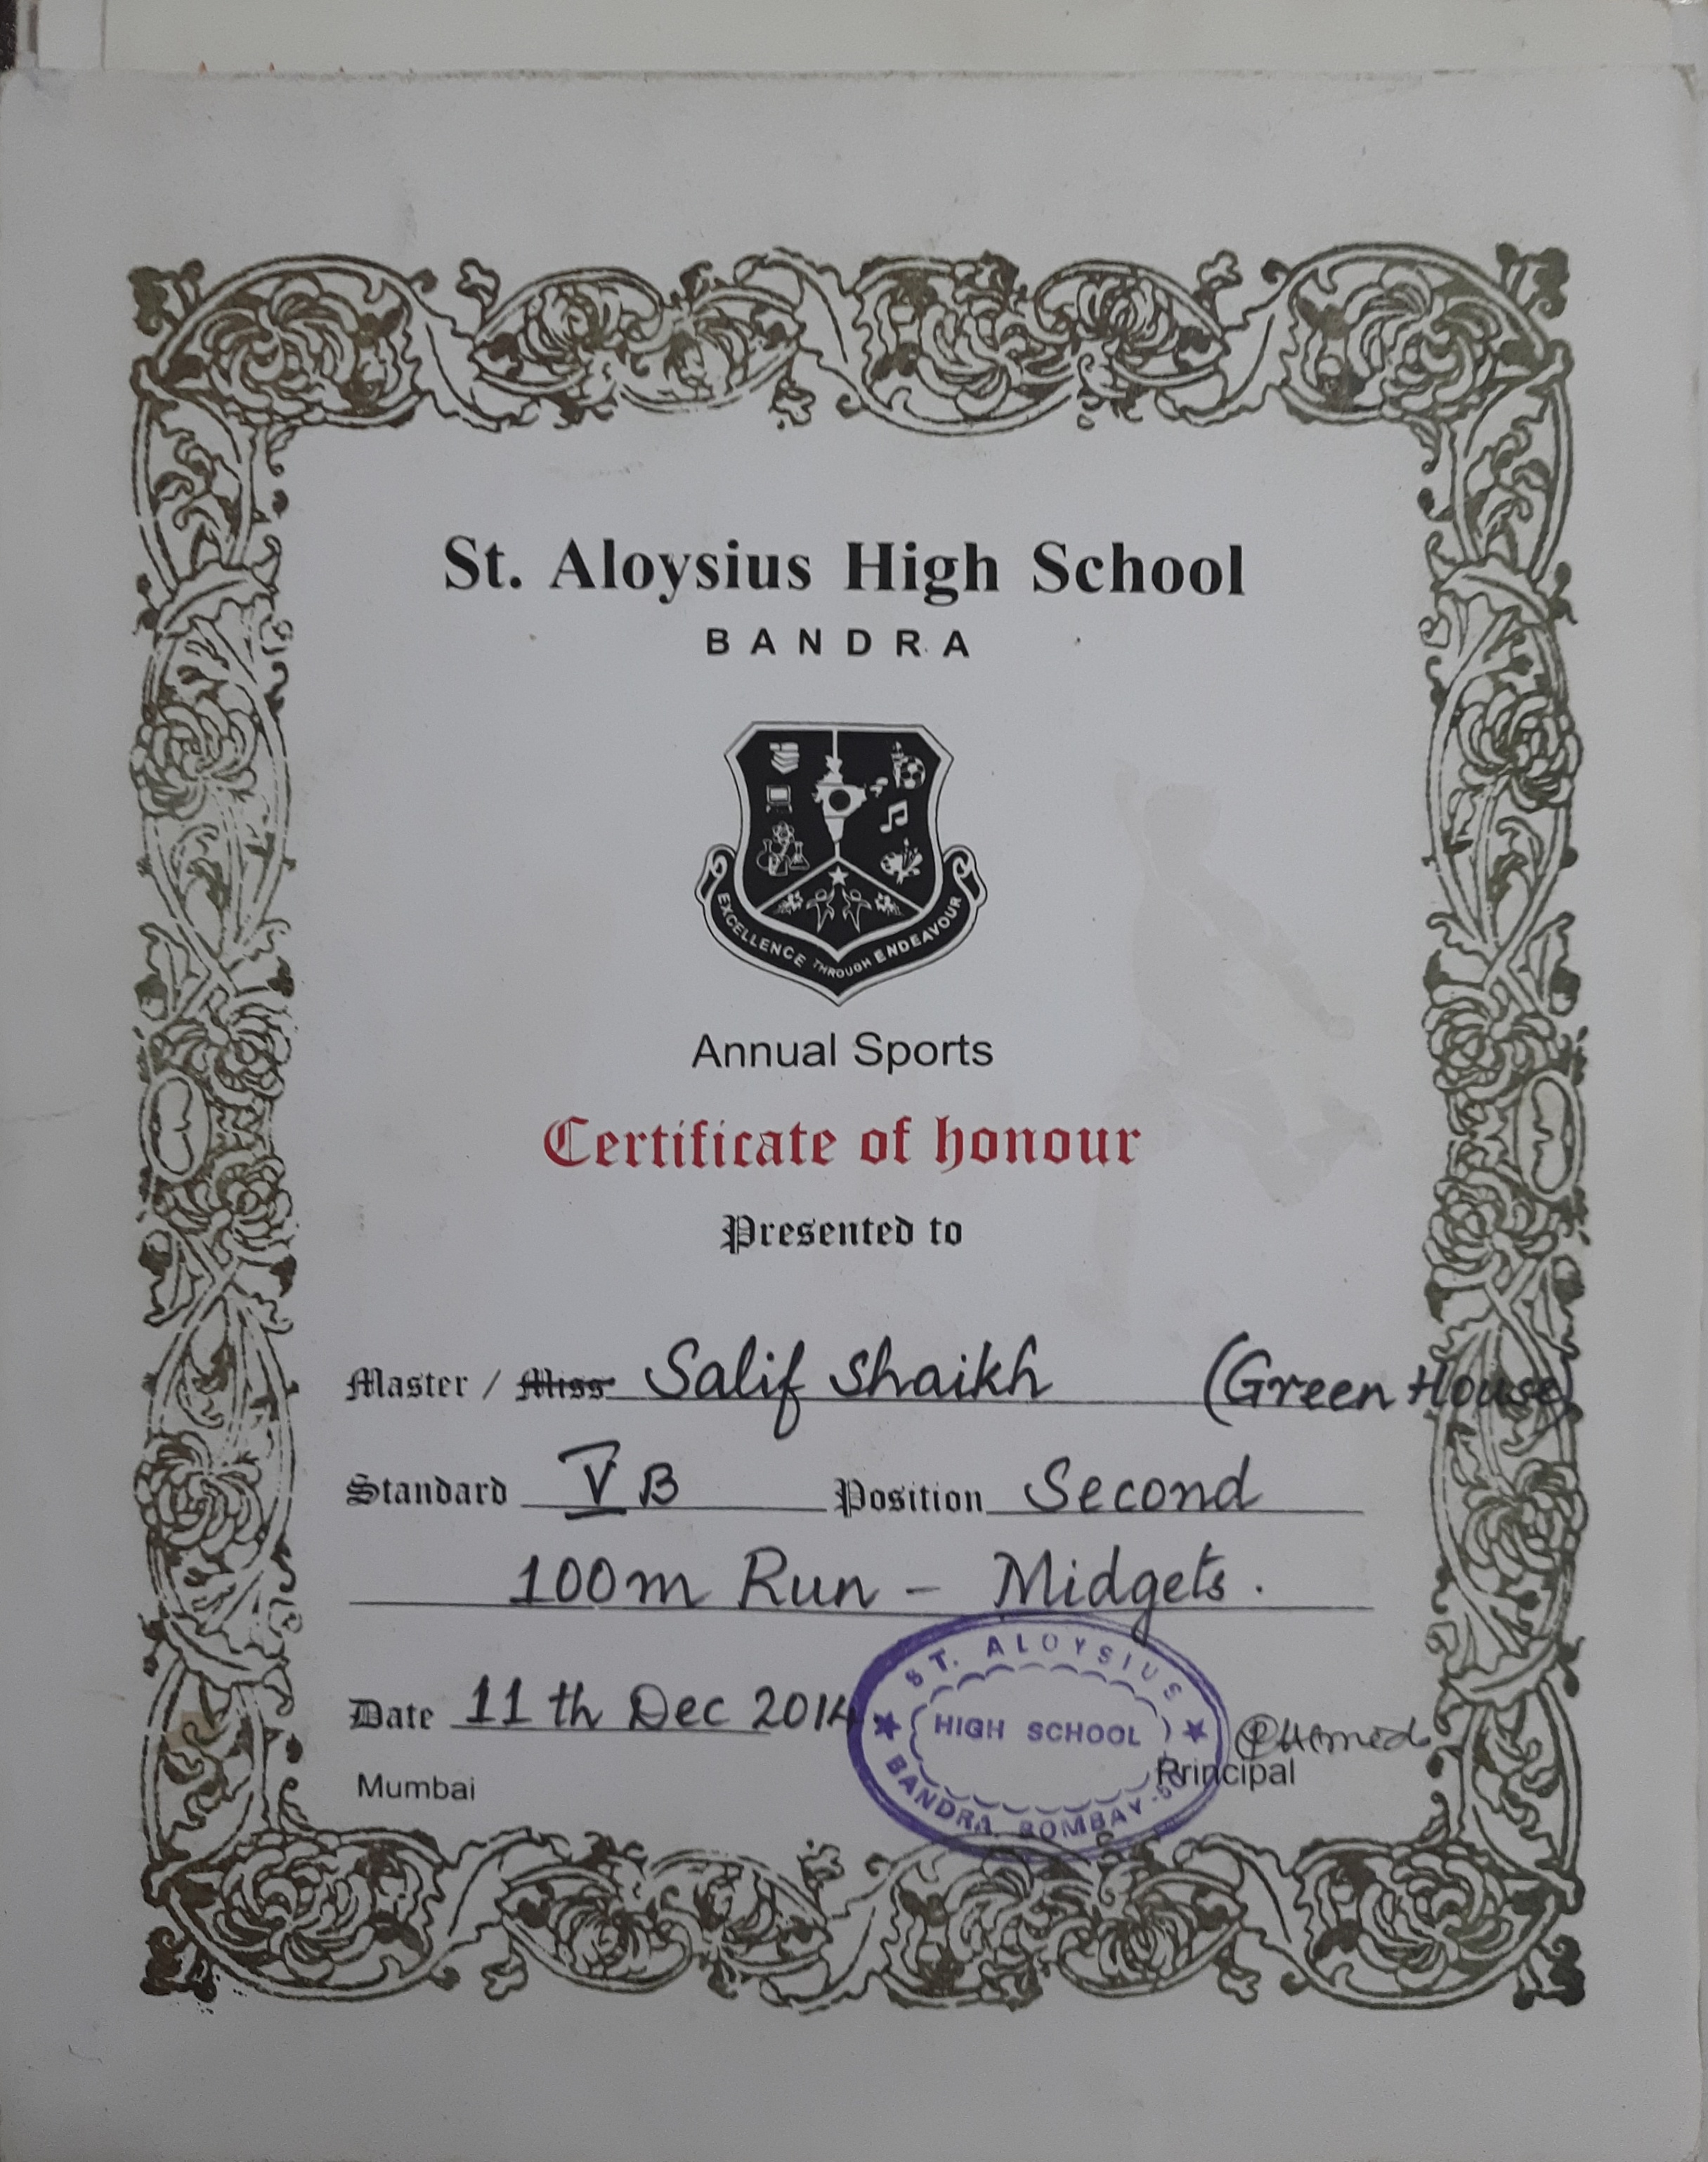 St. Aloysius High School
BANDRA
EXCELLENCE THROUGH ENDEAVOUR
Annual Sports
Certificate of honour
Presented to
Master / Miss Salif Shaikh (Green House)
Standard V B Position Second
100m Run - Midgets.
Date 11th Dec 2014
ST. ALOYSIUS
HIGH SCHOOL
BANDRA BOMBAY-50
Mumbai
Principal